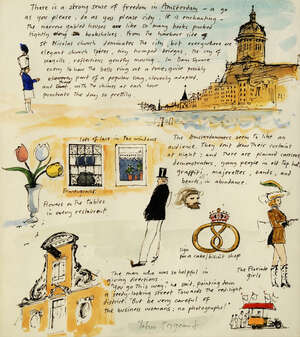 There is a strong sense of freedom in Amsterdam - a go
as you please, do as you please city, it is enchanting.
The narrow gabled houses are like so many books pushed
tightly on bookshelves. From the harbour side of
St Nicolas church dominates the city, but everywhere are
elegant church spires, tiny humped bridges, the cry of
seagulls, cyclists quietly moving. In Dam Square
every ½ hour the bells ring out a
part of a popular song, cleverly adapted,
and with the chimes at each hour
punctuate the day so prettily
lots of lace in the windows
Flowers on the tables
in every restaurant
The Amsterdammers seem to like an
audience. They don't draw their curtains
at night; and there are planned carnivals,
demonstrators, young people in old hats,
graffiti, majorettes, bands, and
beards, in abundance.
Sign
for a cake/biscuit shop
The Parade
girls
The man who was so helpful in
giving directions.
"You go this way," he said, pointing down
a seedy-looking street towards the red light
district. "But be very careful of
the business womans; no photographs!"